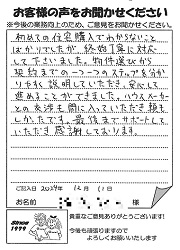 お客様の声をお聞かせください
※今後の業務向上のため、ご意見をお聞かせください。
初めての住宅購入でわからないこと
ばかりでしたが、終始丁寧に対応
して下さいました。物件選びから
契約までの一つ一つのステップを分か
りやすく説明していただき、安心して
進めることができました。ハウスメーカー
との交渉も間に入っていただき頼も
しかったです。最後までサポートして
いただき感謝しております。
ご記入日 2024年 12月 1日
お名前 様
Since
1999
貴重なご意見ありがとうございます!
今後も頑張りますので
よろしくお願いいたします